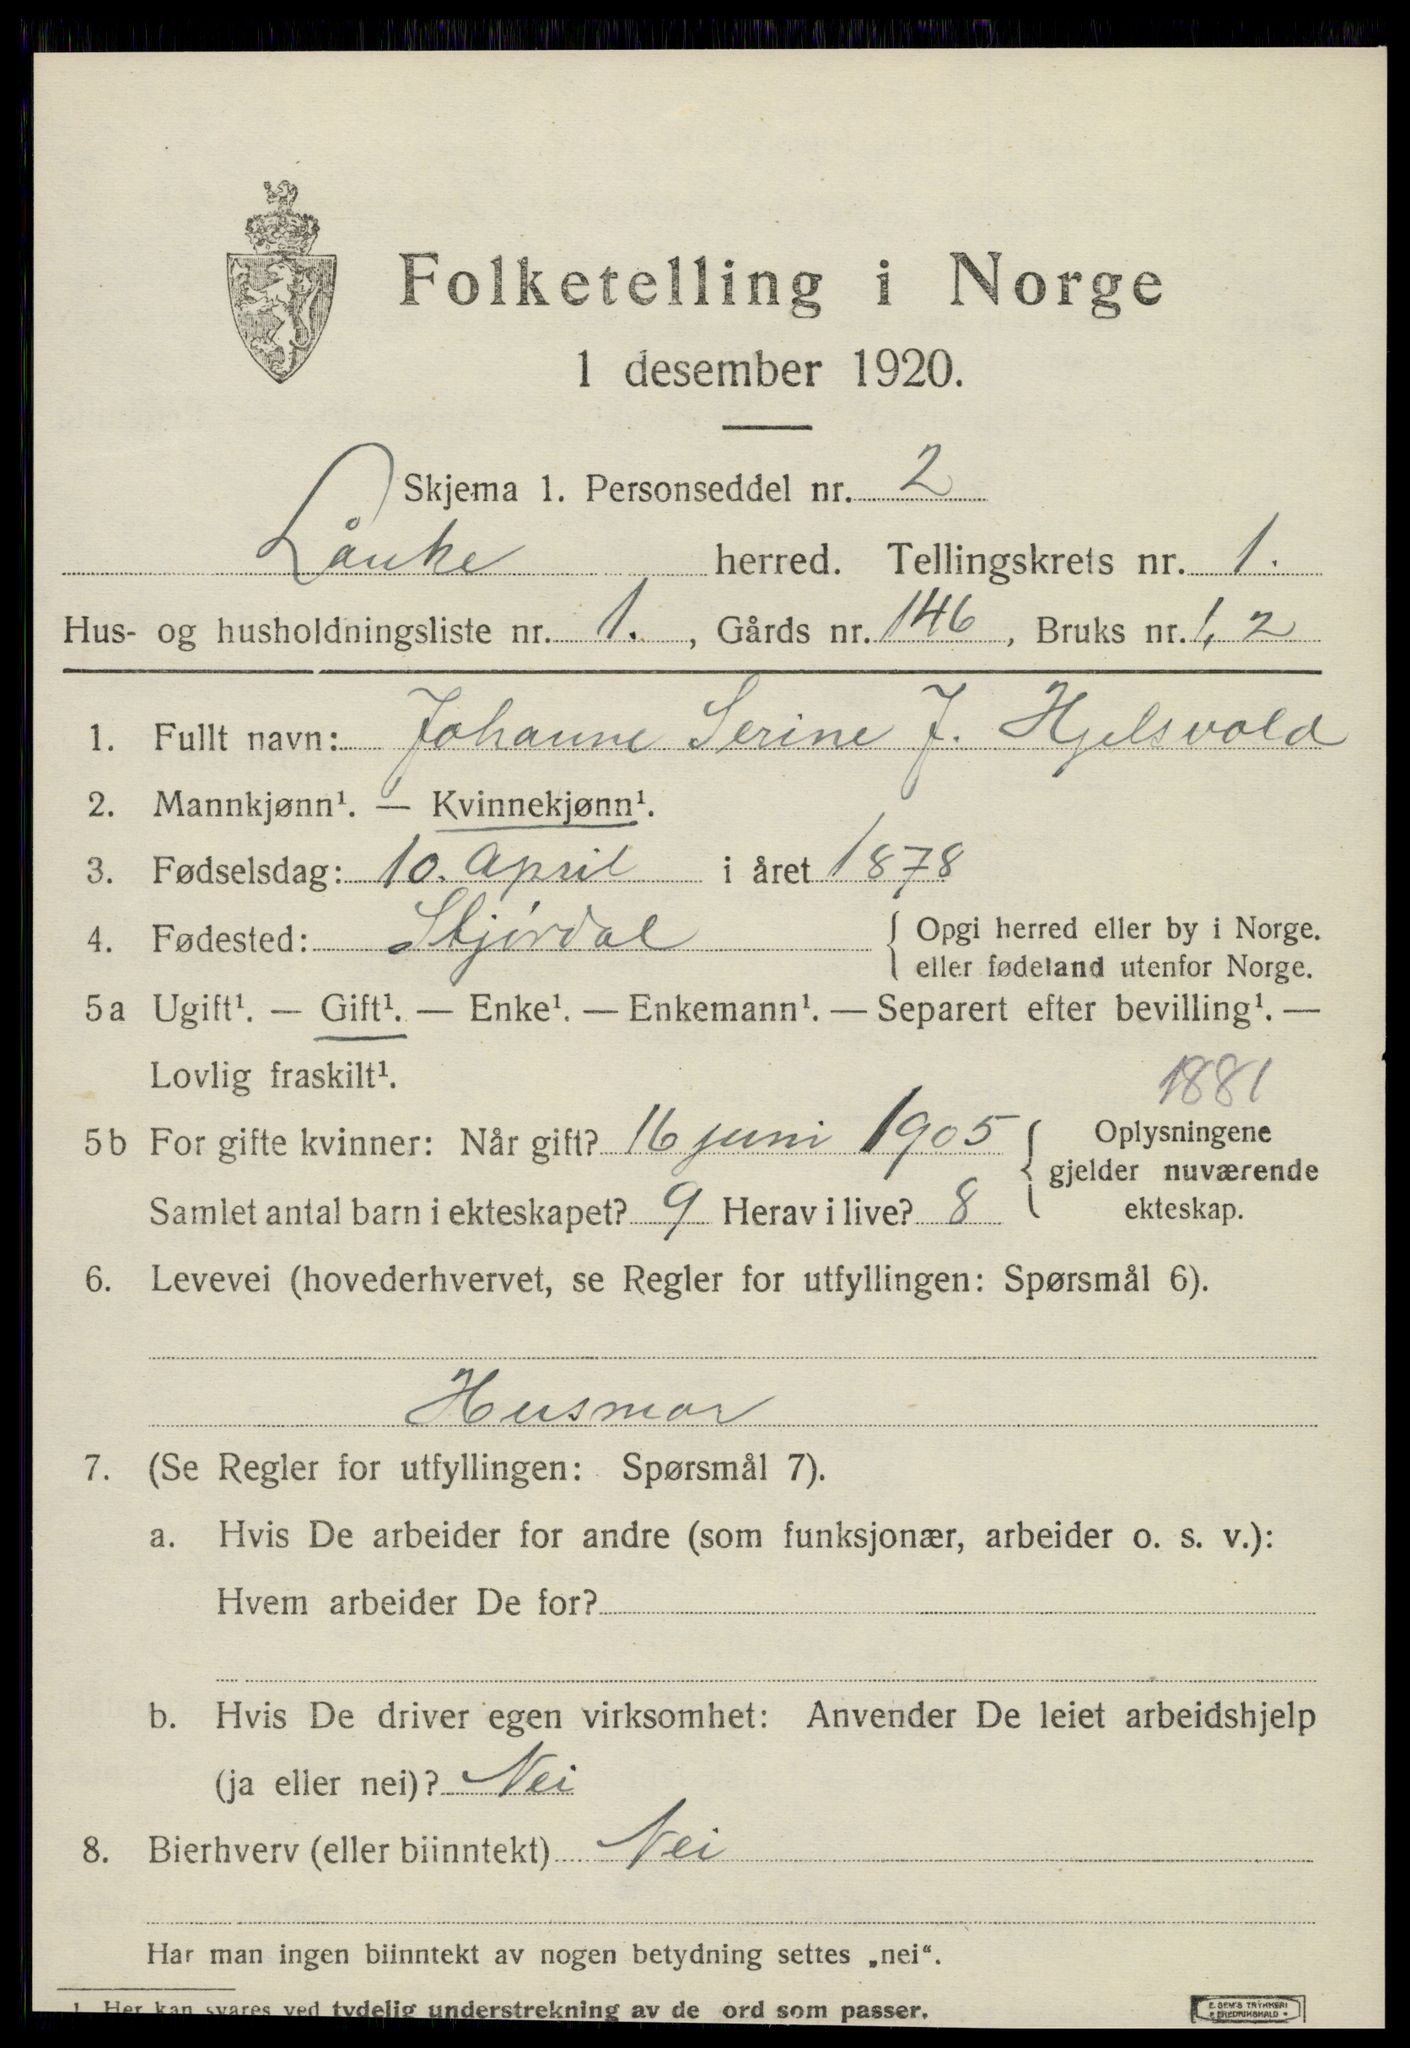 Folketelling i Norge
1 desember 1920.
Skjema 1. Personseddel nr. 2
Lånke herred. Tellingskrets nr. 1.
Hus- og husholdningsliste nr. 1., Gårds nr. 146, Bruks nr. 1, 2
1. Fullt navn: Johanne Serine J. Hjelsvold
2. Mannkjønn¹. — Kvinnekjønn¹.
3. Fødselsdag: 10. april i året 1878
4. Fødested: Stjørdal { Opgi herred eller by i Norge.
eller fødeland utenfor Norge.
5a Ugift¹. — Gift¹. — Enke¹. — Enkemann¹. — Separert efter bevilling¹. —
Lovlig fraskilt¹.
1881
5b For gifte kvinner: Når gift? 16 juni 1905 { Oplysningene
gjelder nuværende
Samlet antal barn i ekteskapet? 9 Herav i live? 8 ekteskap.
6. Levevei (hovederhvervet, se Regler for utfyllingen: Spørsmål 6).
Husmor
7. (Se Regler for utfyllingen: Spørsmål 7).
a. Hvis De arbeider for andre (som funksjonær, arbeider o. s. v.):
Hvem arbeider De for?
b. Hvis De driver egen virksomhet: Anvender De leiet arbeidshjelp
(ja eller nei)? Nei
8. Bierhverv (eller biinntekt) Nei
Har man ingen biinntekt av nogen betydning settes „nei“.
1. Her kan svares ved tydelig understrekning av de ord som passer.
E. SEM'S TRYKKERI
FREDRIKSHALD